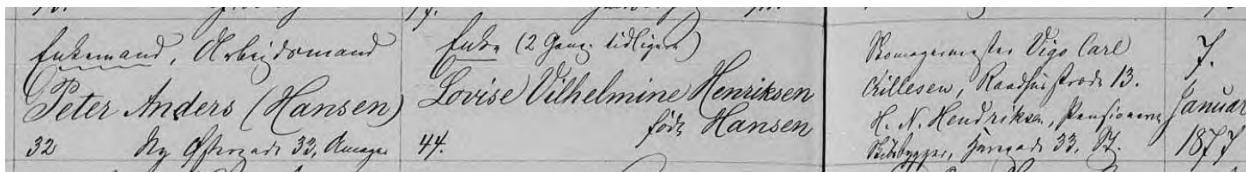 Enkemand, Arbejdsmand
Peter Anders (Hansen)
32 Ny Østergade 33, Amager
Enke (2 Gang. tidligere)
Lovise Vilhelmine Henriksen
født Hansen
44.
Skomagermester Vigo Carl
Raadhusstræde 13.
H. N. Hendriksen, Pensioneret
33, St.
7.
Januar
1877